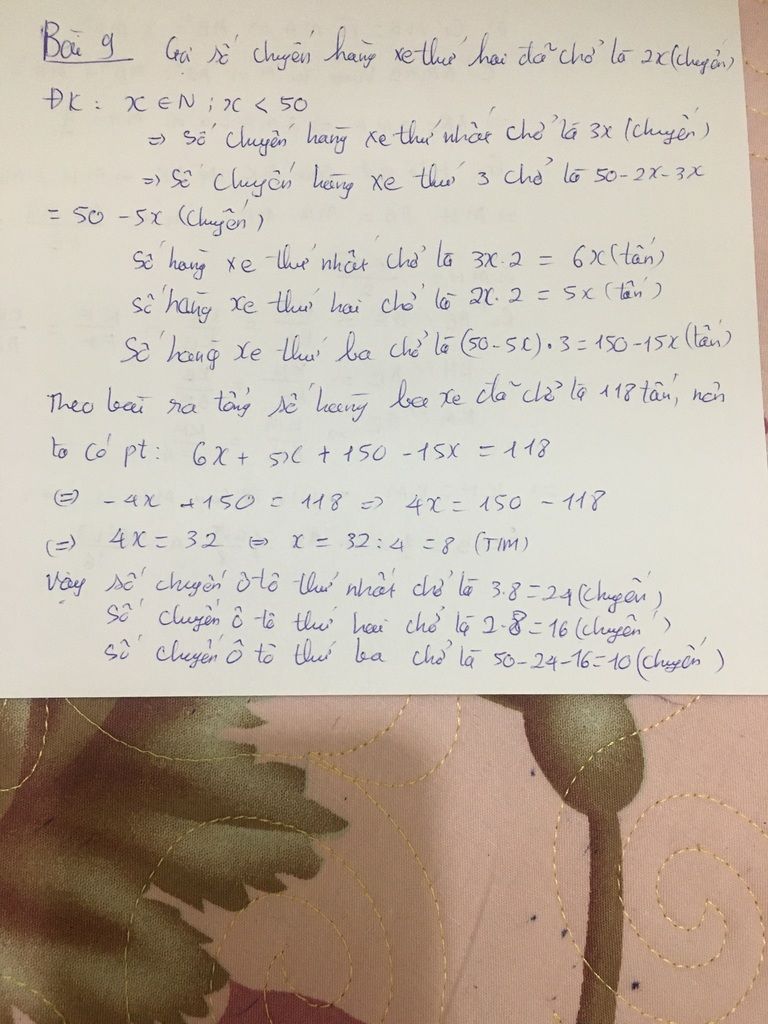 Bài 9 Gọi số chuyến hàng xe thứ hai đã chở là 2x (chuyến)
ĐK: x ∈ N ; x < 50
=> Số chuyến hàng xe thứ nhất chở là 3x (chuyến)
=> Số chuyến hàng xe thứ 3 chở là 50 - 2x - 3x
= 50 - 5x (chuyến)
Số hàng xe thứ nhất chở là 3x . 2 = 6x (tấn)
Số hàng xe thứ hai chở là 2x . 2 = 5x (tấn)
Số hàng xe thứ ba chở là (50 - 5x) . 3 = 150 - 15x (tấn)
Theo bài ra tổng số hàng ba xe đã chở là 118 tấn, nên
ta có pt: 6x + 5x + 150 - 15x = 118
(=) - 4x + 150 = 118 => 4x = 150 - 118
(=) 4x = 32 <=> x = 32 : 4 = 8 (TM)
Vậy số chuyến ô tô thứ nhất chở là 3.8 = 24 (chuyến)
Số chuyến ô tô thứ hai chở là 2.8 = 16 (chuyến)
Số chuyến ô tô thứ ba chở là 50 - 24 - 16 = 10 (chuyến)